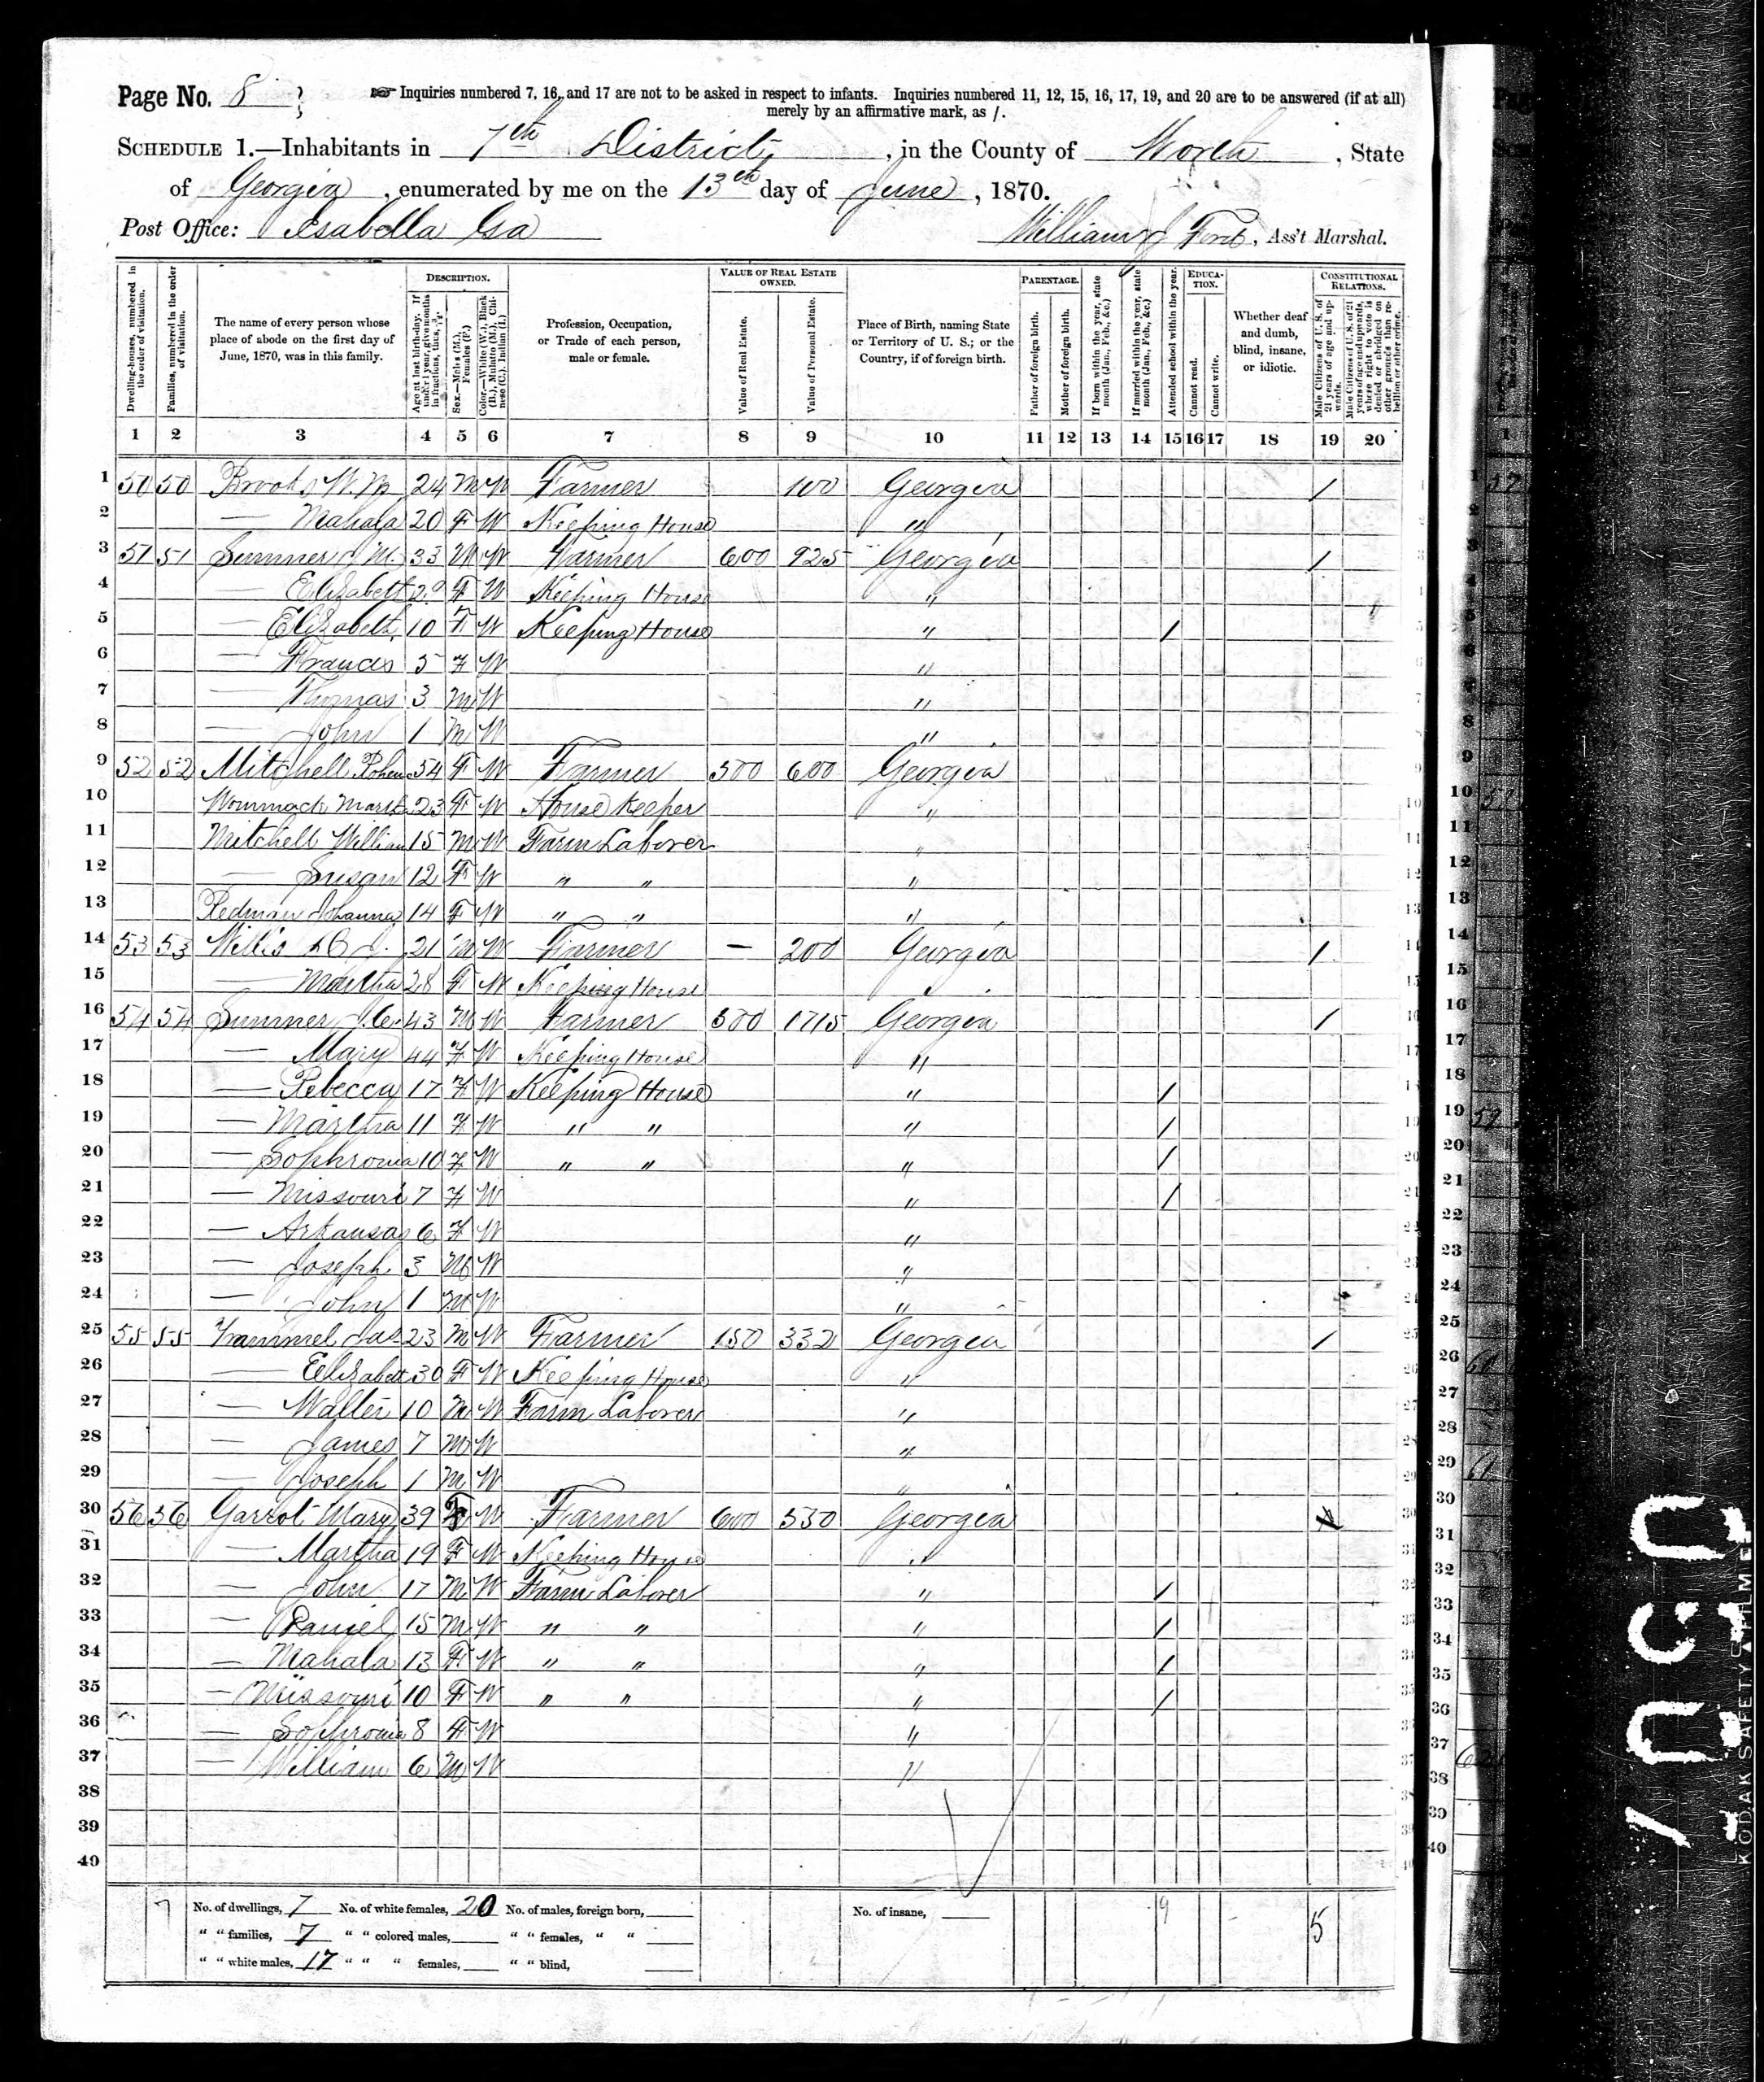 Page No. 8
☞ Inquiries numbered 7, 16, and 17 are not to be asked in respect to infants. Inquiries numbered 11, 12, 15, 16, 17, 19, and 20 are to be answered (if at all)
merely by an affirmative mark, as /.
SCHEDULE 1.—Inhabitants in 7th District, in the County of Worth, State
of Georgia, enumerated by me on the 13th day of June, 1870.
Post Office: Isabella Ga
William J Ford, Ass't Marshal.
Dwelling-houses, numbered in the order of visitation.
Families, numbered in the order of visitation.
The name of every person whose place of abode on the first day of June, 1870, was in this family.
DESCRIPTION.
Age at last birth-day. If under 1 year, give months in fractions, thus, 3/12.
Sex.—Males (M.), Females (F.)
Color.—White (W.), Black (B.), Mulatto (M.), Chinese (C.), Indian (I.)
Profession, Occupation, or Trade of each person, male or female.
VALUE OF REAL ESTATE OWNED.
Value of Real Estate.
Value of Personal Estate.
Place of Birth, naming State or Territory of U. S.; or the Country, if of foreign birth.
PARENTAGE.
Father of foreign birth.
Mother of foreign birth.
If born within the year, state month (Jan., Feb., &c.)
If married within the year, state month (Jan., Feb., &c.)
Attended school within the year.
EDUCATION.
Cannot read.
Cannot write.
Whether deaf and dumb, blind, insane, or idiotic.
CONSTITUTIONAL RELATIONS.
Male Citizens of U. S. of 21 years of age and upwards.
Male Citizens of U. S. of 21 years of age and upwards, where right to vote is denied or abridged on other grounds than rebellion or other crime.
1 2 3 4 5 6 7 8 9 10 11 12 13 14 15 16 17 18 19 20
1 50 50 Brooks W. M 24 M W Farmer 100 Georgia /
2 — Mahala 20 F W Keeping House "
3 51 51 Sumner J M. 33 M W Farmer 600 925 Georgia /
4 — Elizabeth 29 F W Keeping House "
5 — Elizabeth 10 F W Keeping House " /
6 — Frances 5 F W "
7 — Thomas 3 M W "
8 — John 1 M W "
9 52 52 Mitchell 54 F W Farmer 500 600 Georgia
10 Wommack Marth 23 F W House Keeper "
11 Mitchell William 15 M W Farm Laborer "
12 — Susan 12 F W " " "
13 Redman Johanna 14 F W " " "
14 53 53 Willis J. 21 M W Farmer — 200 Georgia /
15 — Martha 28 F W Keeping House "
16 54 54 Sumner J. C. 43 M W Farmer 500 1715 Georgia /
17 — Mary 44 F W Keeping House "
18 — Rebecca 17 F W Keeping House " /
19 — Martha 11 F W " " " /
20 — Sophronia 10 F W " " " /
21 — Missouri 7 F W " /
22 — Arkansas 6 F W "
23 — Joseph 3 M W "
24 — John 1 M W "
25 55 55 Trammel Jas 23 M W Farmer 150 332 Georgia /
26 — Elizabeth 30 F W Keeping House "
27 — Walter 10 M W Farm Laborer "
28 — James 7 M W "
29 — Joseph 1 M W "
30 56 56 Garrot Mary 39 F W Farmer 600 530 Georgia
31 — Martha 19 F W Keeping House "
32 — John 17 M W Farm Laborer " /
33 — Daniel 15 M W " " " /
34 — Mahala 13 F W " " " /
35 — Missouri 10 F W " " " /
36 — Sophronia 8 F W "
37 — William 6 M W "
38
39
40
No. of dwellings, 7 No. of white females, 20 No. of males, foreign born, No. of insane, 9 5
" " families, 7 " " colored males, " " females, " "
" " white males, 17 " " " females, " " blind,
KODAK SAFETY FILM